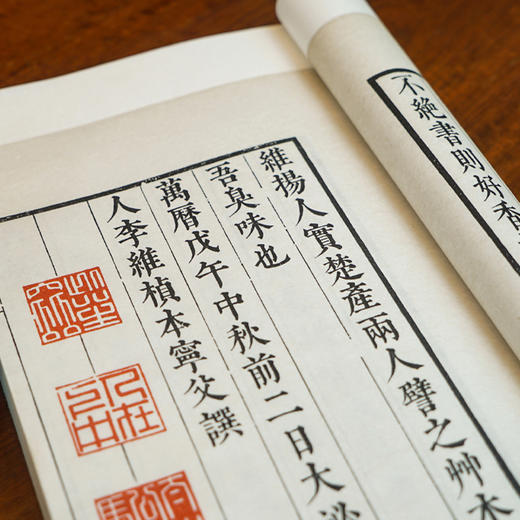 不絶書則好香
維揚人實楚產兩人譬之艸木
吾臭味也
萬曆戊午中秋前二日大泌
人李維楨本寧父譔